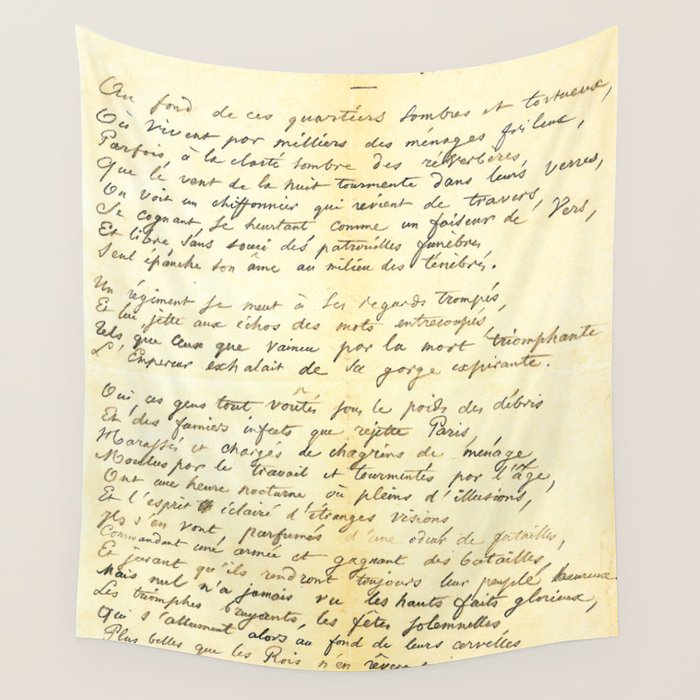 Au fond de ces quartiers sombres et tortueux,
Où vivent par milliers des ménages frileux,
Parfois, à la clarté sombre des réverbères,
Que le vent de la nuit tourmente dans leurs verres,
On voit un chiffonnier qui revient de travers,
Se cognant, se heurtant comme un faiseur de Vers,
Et libre, sans souci des patrouilles funèbres,
Seul épanche son âme au milieu des ténèbres.
Un régiment se meut à ses regards trompés,
Et lui jette aux échos des mots entrecoupés,
Tels que ceux que vaincu par la mort triomphante
L'Empereur exhalait de sa gorge expirante.
Oui ces gens tout voûtés sous le poids des débris
Et des fumiers infects que rejette Paris,
Harassés et chargés de chagrins de ménage,
Moulus par le travail et tourmentés par l'âge,
Ont une heure nocturne où pleins d'illusions,
Et l'esprit éclairé d'étranges visions,
Ils s'en vont, parfumés d'une odeur de futailles,
Commandant une armée et gagnant des batailles,
Et jurant qu'ils rendront toujours leur peuple heureux.
Mais nul n'a jamais vu les hauts faits glorieux,
Les triomphes bruyants, les fêtes solennelles
Qui s'allument alors au fond de leurs cervelles
Plus belles que les Rois n'en